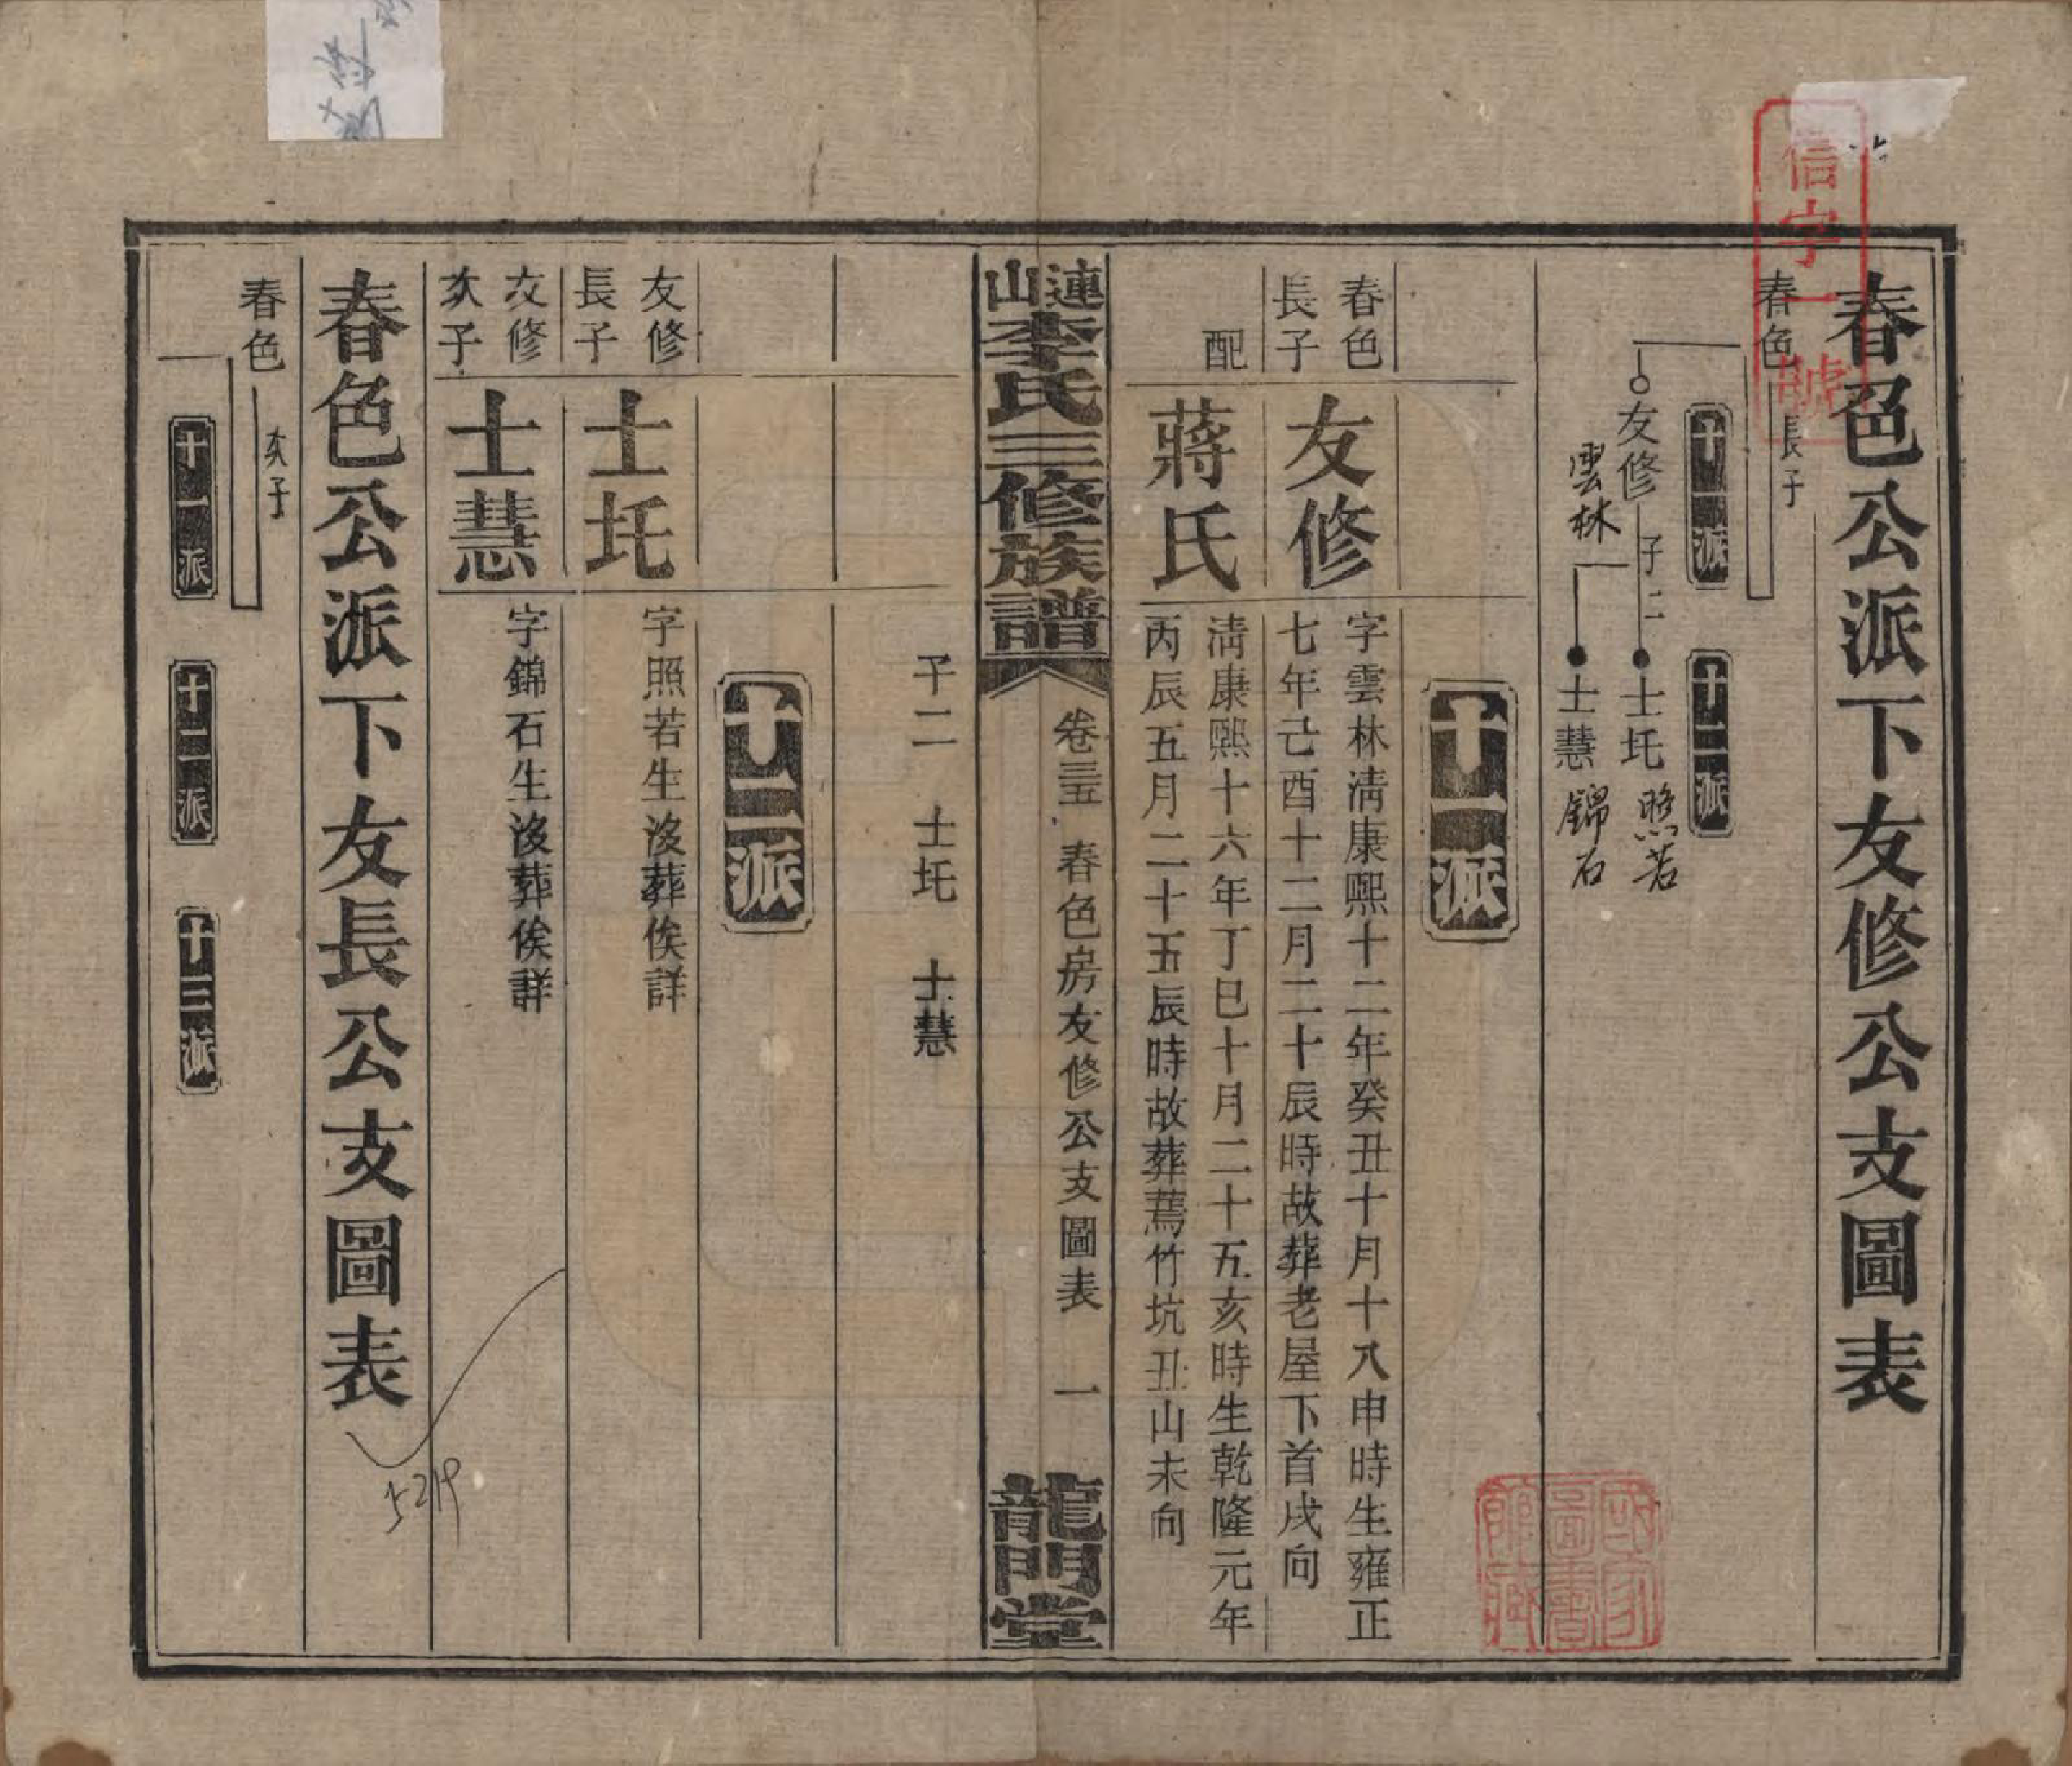 春色公派下友修公支圖表
信字一號
春色 長子
十一派
十二派
友修 子二
雲林
士圫 照若
士慧 錦石
國家圖書館藏
十一派
春色
長子
友修
字雲林清康熙十二年癸丑十月十八申時生雍正
七年己酉十二月二十辰時故葬老屋下首戌向
配
蔣氏
清康熙十六年丁巳十月二十五亥時生乾隆元年
丙辰五月二十五辰時故葬蔫竹坑丑山未向
漣山李氏三修族譜
卷三五 春色房友修公支圖表 一
龍門堂
子二 士圫 士慧
十二派
友修
長子
士圫
字照若生沒葬俟詳
友修
次子
士慧
字錦石生沒葬俟詳
春色公派下友長公支圖表
5219
春色 次子
十一派
十二派
十三派